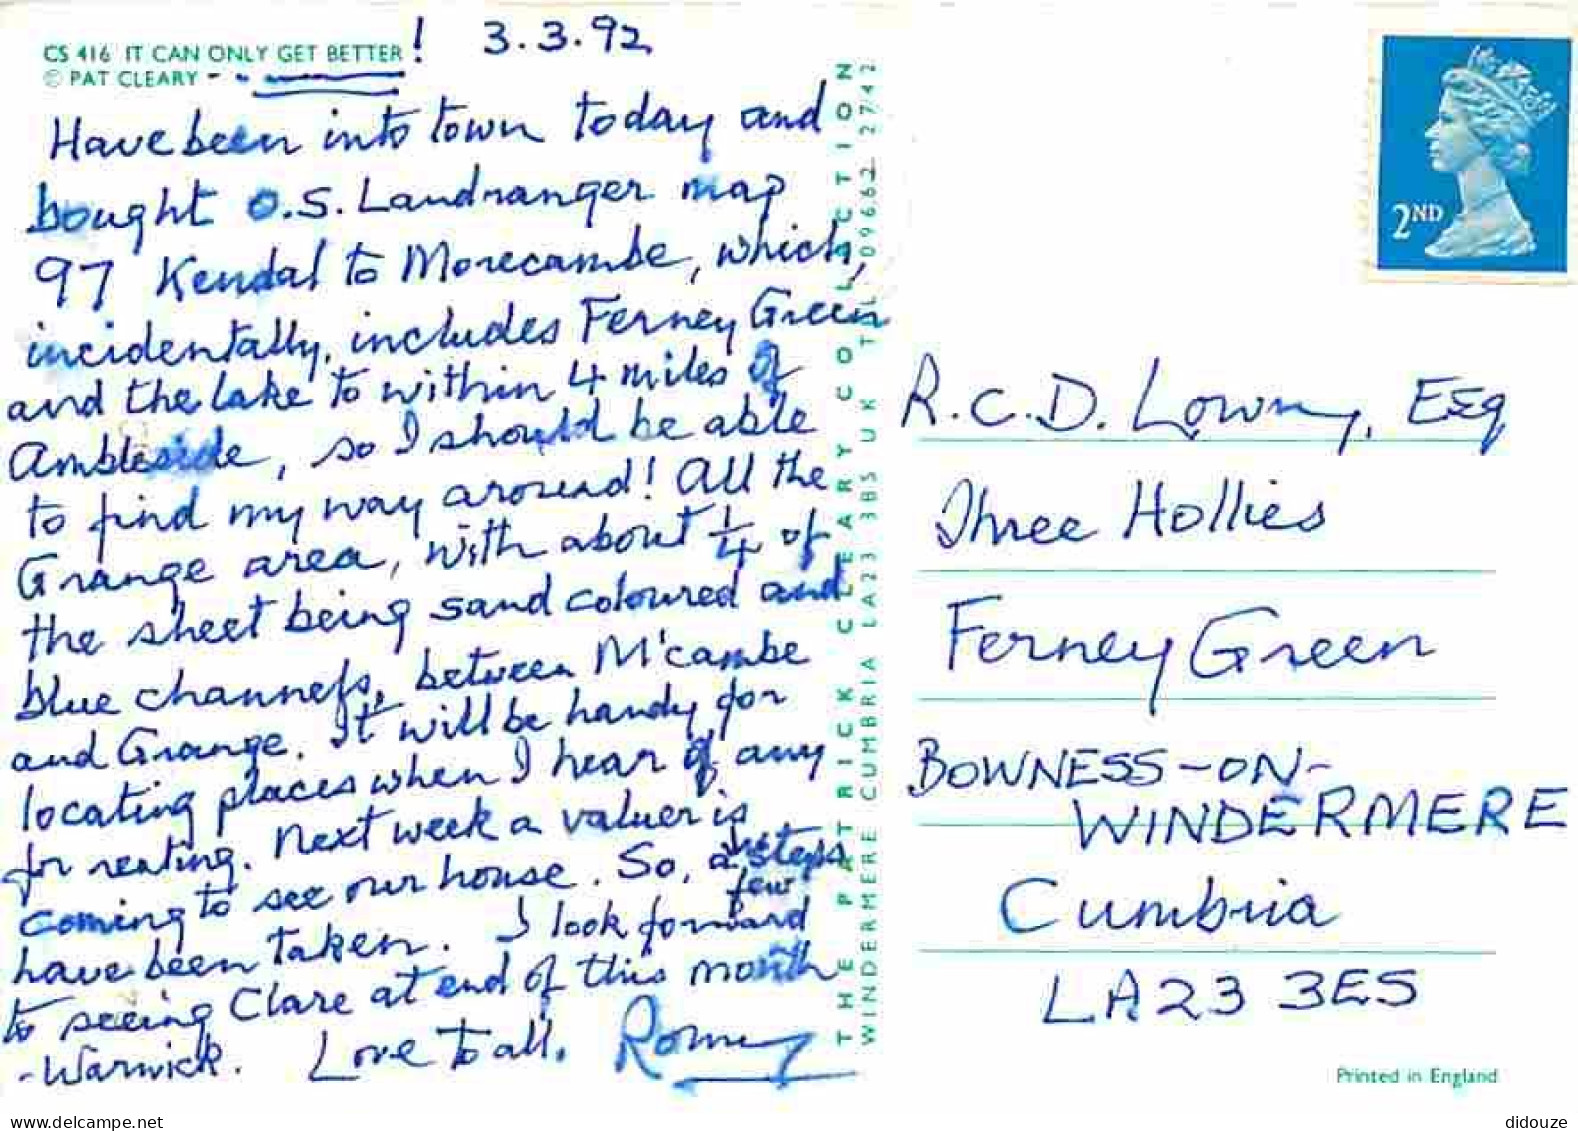 CS 416 IT CAN ONLY GET BETTER!
© PAT CLEARY
3.3.92
Have been into town today and
bought O.S. Landranger map
97 Kendal to Morecambe, which,
incidentally, includes Ferney Green
and the lake to within 4 miles of
Ambleside, so I should be able
to find my way around! All the
Grange area, with about 1/4 of
the sheet being sand coloured and
blue channels, between M'cambe
and Grange. It will be handy for
locating places when I hear of any
for renting. Next week a valuer is
coming to see our house. So, a few steps
have been taken. I look forward
to seeing Clare at end of this month
- Warwick. Love to all. Romey
THE PATRICK CLEARY COLLECTION
WINDERMERE CUMBRIA LA23 3BS UK TEL 09662 2742
2ND
R.C.D. Lowry, Esq
Three Hollies
Ferney Green
BOWNESS-ON-
WINDERMERE
Cumbria
LA23 3ES
Printed in England
delcampe.net
didouze